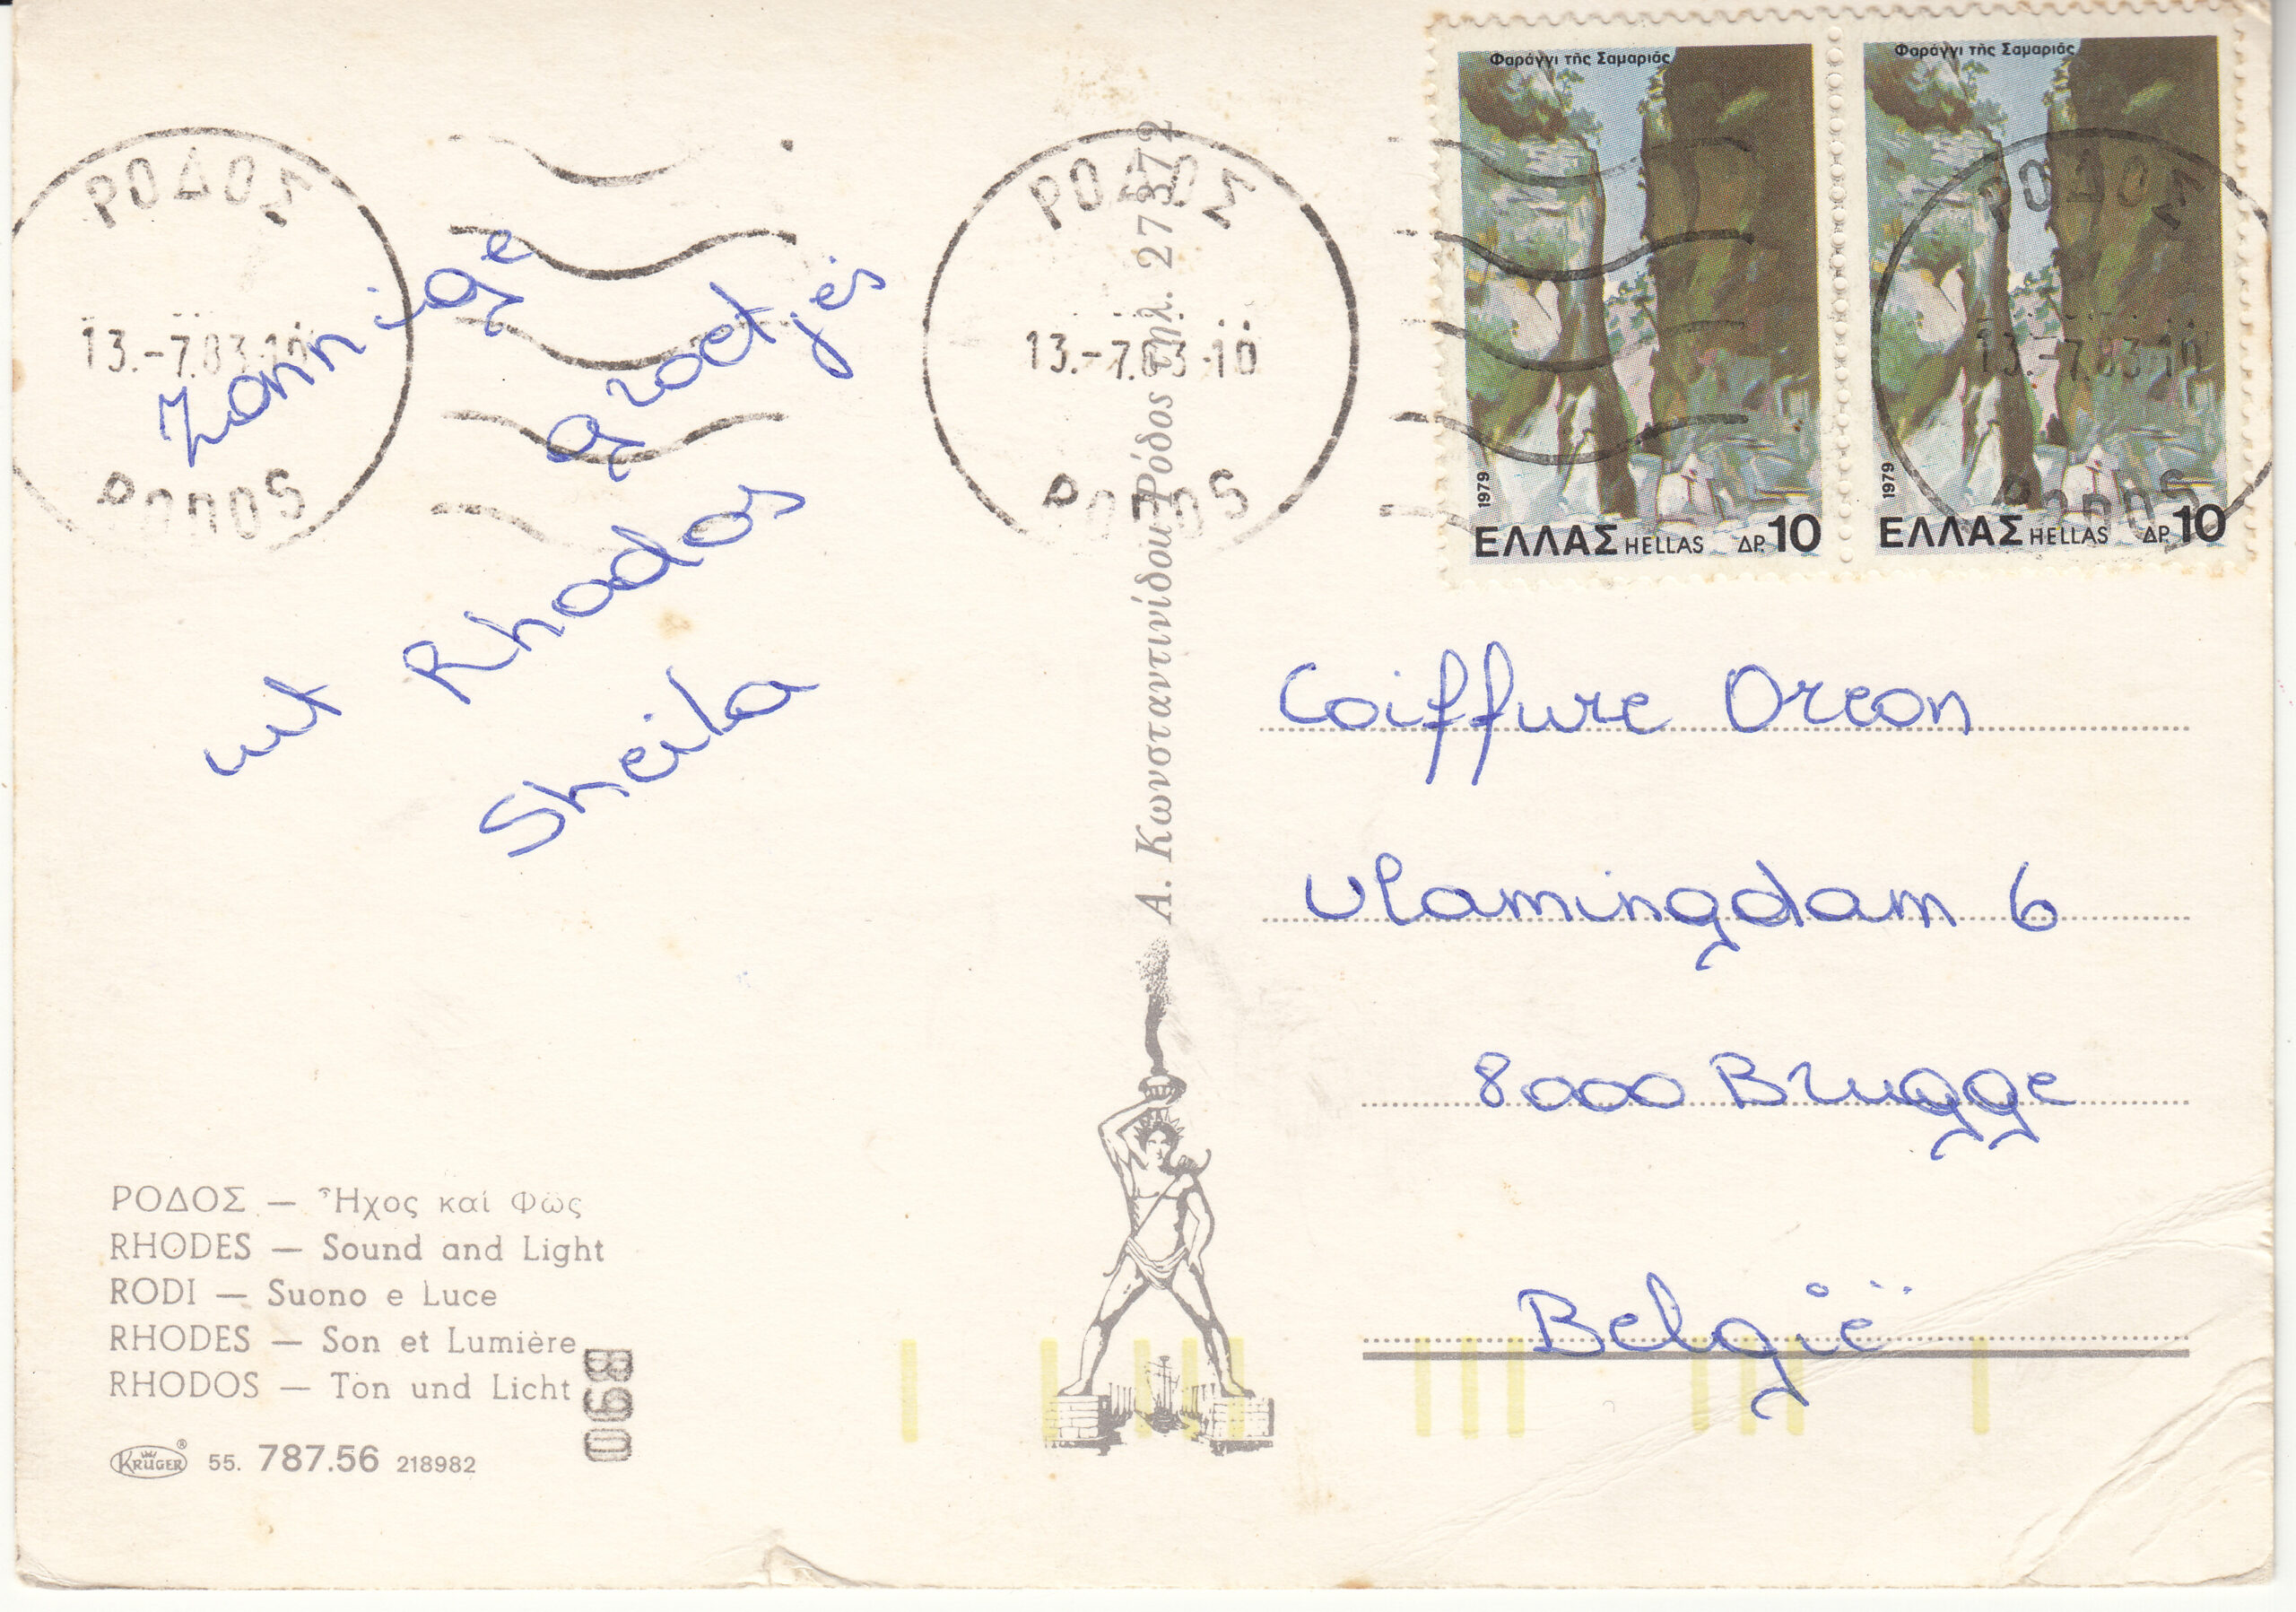 Φαράγγι τῆς Σαμαριᾶς
1979
ΕΛΛΑΣ HELLAS ΔΡ. 10
Φαράγγι τῆς Σαμαριᾶς
1979
ΕΛΛΑΣ HELLAS ΔΡ. 10
ΡΟΔΟΣ
13.-7.83-10
RODOS
ΡΟΔΟΣ
13.-7.83-10
RODOS
ΡΟΔΟΣ
13.-7.83-10
RODOS
Zonnige
groetjes
uit Rhodos
Sheila
Α. Κωνσταντινίδου Ρόδος τηλ. 27372
Coiffure Oreon
Vlamingdam 6
8000 Brugge
België
ΡΟΔΟΣ — Ἦχος καί Φῶς
RHODES — Sound and Light
RODI — Suono e Luce
RHODES — Son et Lumière
RHODOS — Ton und Licht
B90
KRÜGER® 55. 787.56 218982